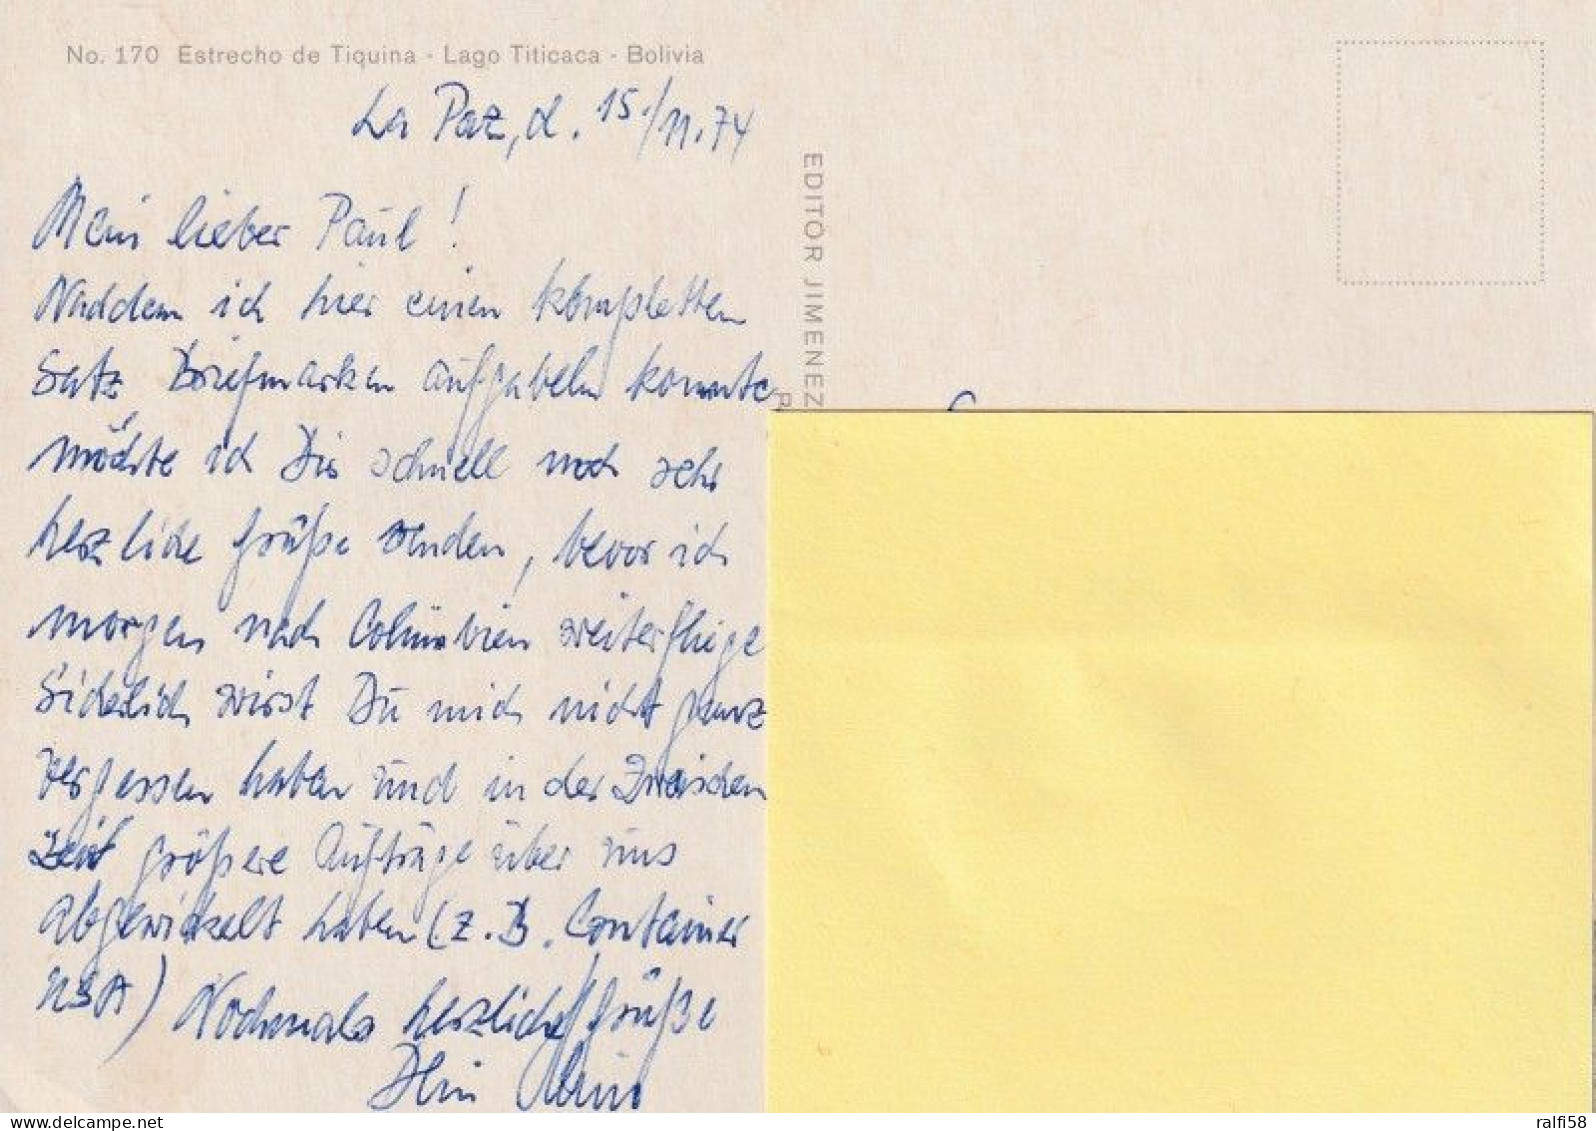 No. 170 Estrecho de Tiquina - Lago Titicaca - Bolivia
La Paz, d. 15./11.74
Mein lieber Paul!
Nachdem ich hier einen kompletten
Satz Briefmarken aufgabeln konnte
möchte ich Dir schnell noch sehr
herzliche Grüße senden, bevor ich
morgen nach Columbien weiterfliege
Sicherlich wirst Du mich nicht ganz
vergessen haben und in der Zwischen
zeit größere Aufträge über uns
abgewickelt haben (z.B. Container
USA) Nochmals herzliche Grüße
Dein
EDITOR JIMENEZ
R
delcampe.net
ralfi58